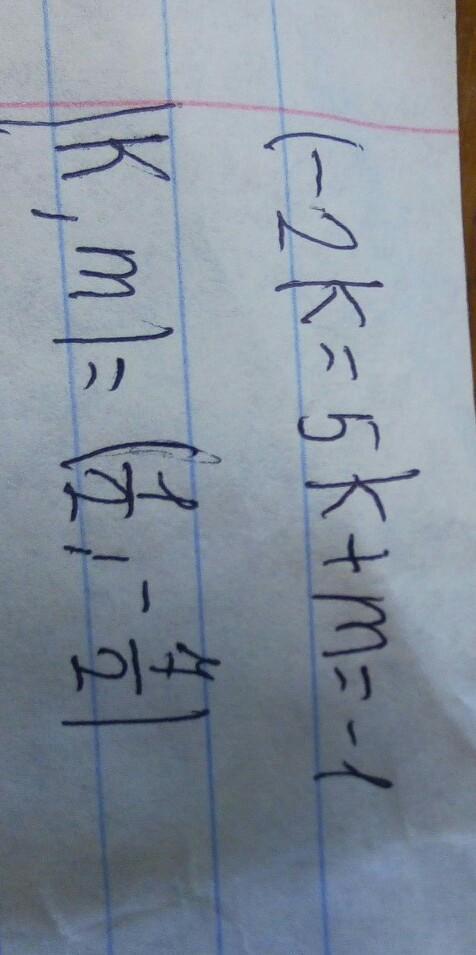 (-2k = 5k + m = -1
(k, m) = (1/2, -4/2)